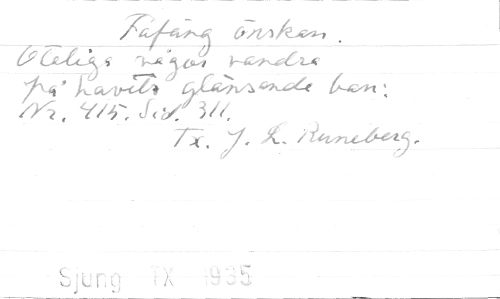 Fåfäng önskan.
Otaliga vågor vandra
på havets glänsande ban:
Nr. 415. Sid. 311.
Tx. J. L. Runeberg.
Sjung TX 1935